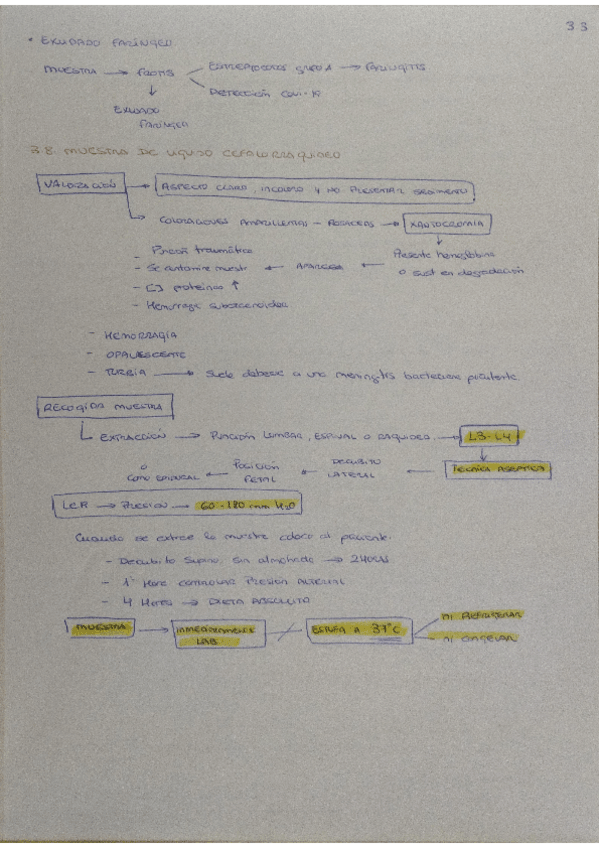 33
• EXUDADO FARÍNGEO
MUESTRA → FROTIS
ESTREPTOCOCOS GRUPO A → FARINGITIS
DETECCIÓN COVI-19
EXUDADO
FARINGEA
3.8. MUESTRA DE LIQUIDO CEFALORRAQUIDEO
VALORACIÓN → ASPECTO CLARO, INCOLORO Y NO PRESENTAR SEDIMENTO
COLORACIONES AMARILLENTAS - ROSACEAS → XANTOCROMIA
Presente hemoglobina
o sust en degradación
← APARECE ←
- Punción traumática
- Se contamine muestra
- [ ] proteinas ↑
- Hemorragia subaracnoidea
- HEMORRAGIA
- OPALESCENTE
- TURBIA → Suele deberse a una meningitis bacteriana purulenta
RECOGIDA MUESTRA
EXTRACCIÓN → PUNCIÓN LUMBAR, ESPINAL O RAQUIDEO → L3-L4
TECNICA ASEPTICA
← DECUBITO
LATERAL
← POSICIÓN
FETAL
← ó
COMO EPIDURAL
LCR → PRESION → 60-180 mm H2O
Cuando se extrae la muestra coloco al paciente:
- Decubito Supino, Sin almohada → 24 HORAS
- 1ª Hora CONTROLAR PRESIÓN ARTERIAL
- 4 Horas → DIETA ABSOLUTA
MUESTRA → INMEDIATAMENTE
LAB → ESTUFA A 37°C
NI REFRIGERAR
NI CONGELAR